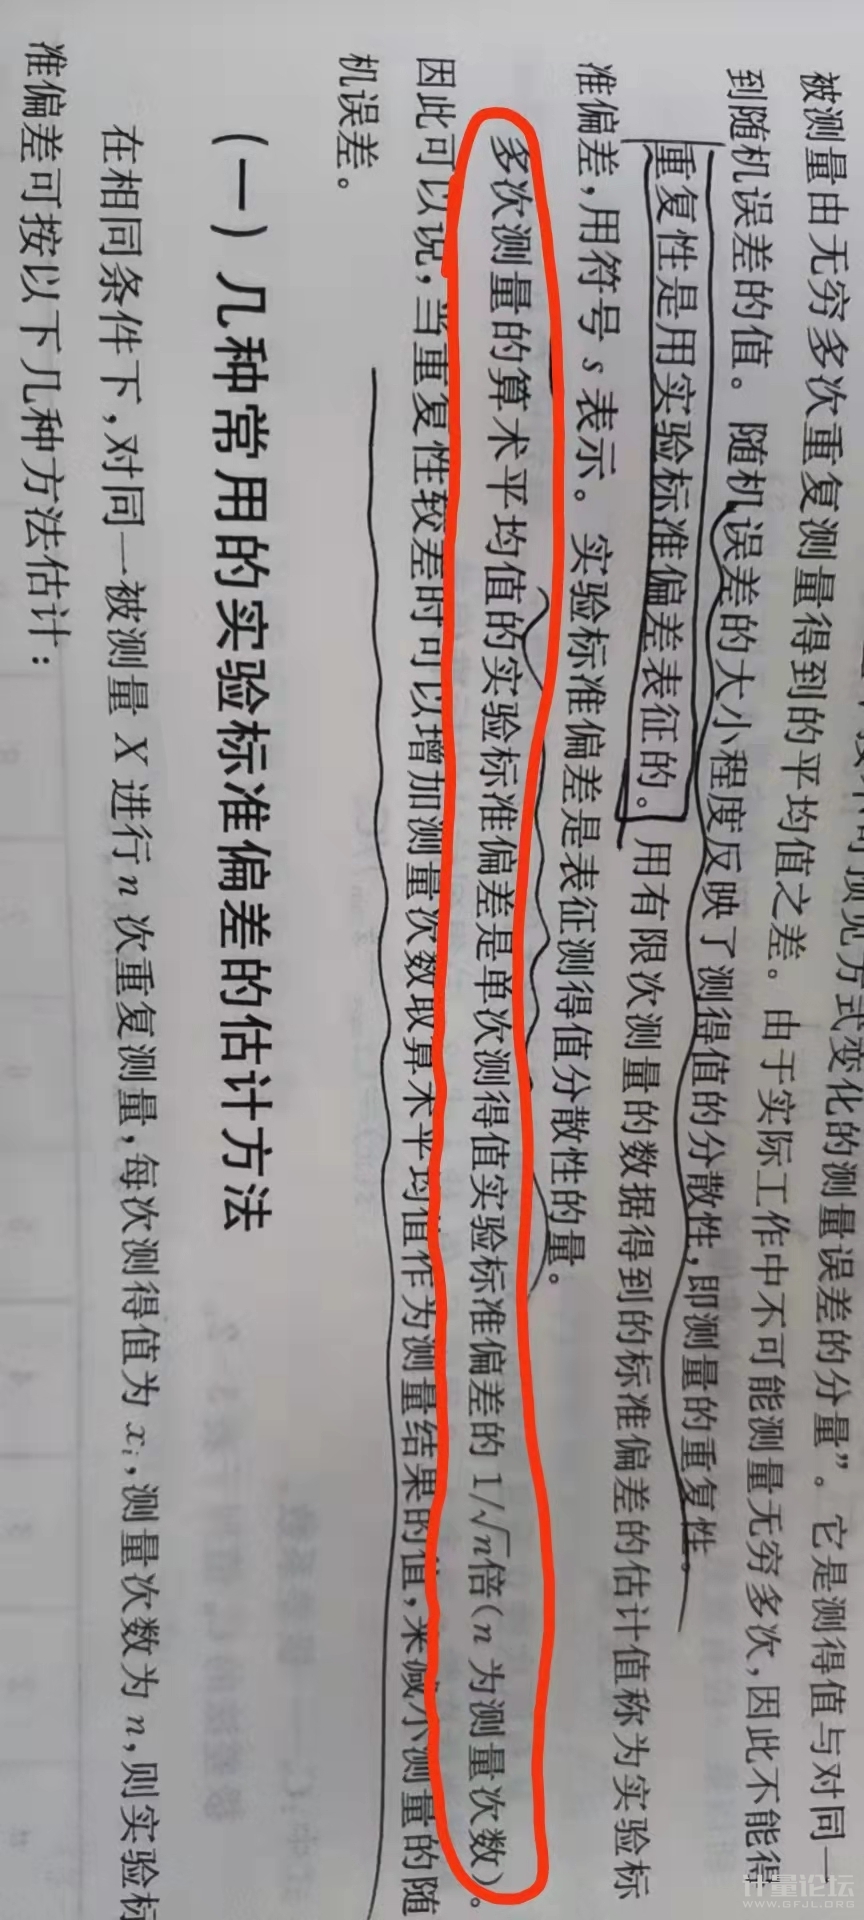 可预见方式变化的测量误差的分量”。它是测得值与对同一
被测量由无穷多次重复测量得到的平均值之差。由于实际工作中不可能测量无穷多次,因此不能得
到随机误差的值。随机误差的大小程度反映了测得值的分散性,即测量的重复性。
重复性是用实验标准偏差表征的。用有限次测量的数据得到的标准偏差的估计值称为实验标
准偏差,用符号 s 表示。实验标准偏差是表征测得值分散性的量。
多次测量的算术平均值的实验标准偏差是单次测得值实验标准偏差的 1/√n倍(n 为测量次数)。
因此可以说,当重复性较差时可以增加测量次数取算术平均值作为测量结果的值,来减小测量的随
机误差。
(一) 几种常用的实验标准偏差的估计方法
在相同条件下,对同一被测量 X 进行 n 次重复测量,每次测得值为 xᵢ,测量次数为 n,则实验标
准偏差可按以下几种方法估计:
计量论坛
WWW.GFJL.ORG